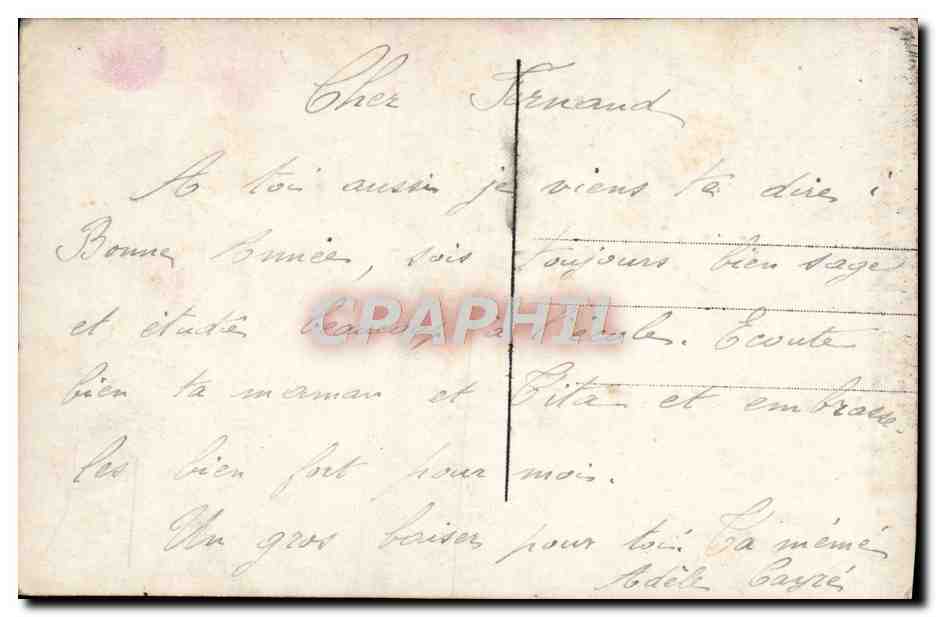 Cher Fernand
A toi aussi je viens ta dire :
Bonne Année, sois toujours bien sage
et étudie beaucoup à l'école. Ecoute
bien ta maman et Tita et embrasse-
les bien fort pour moi.
Un gros baiser pour toi. Ta mémé
Adèle Cayré
CPAPHIL